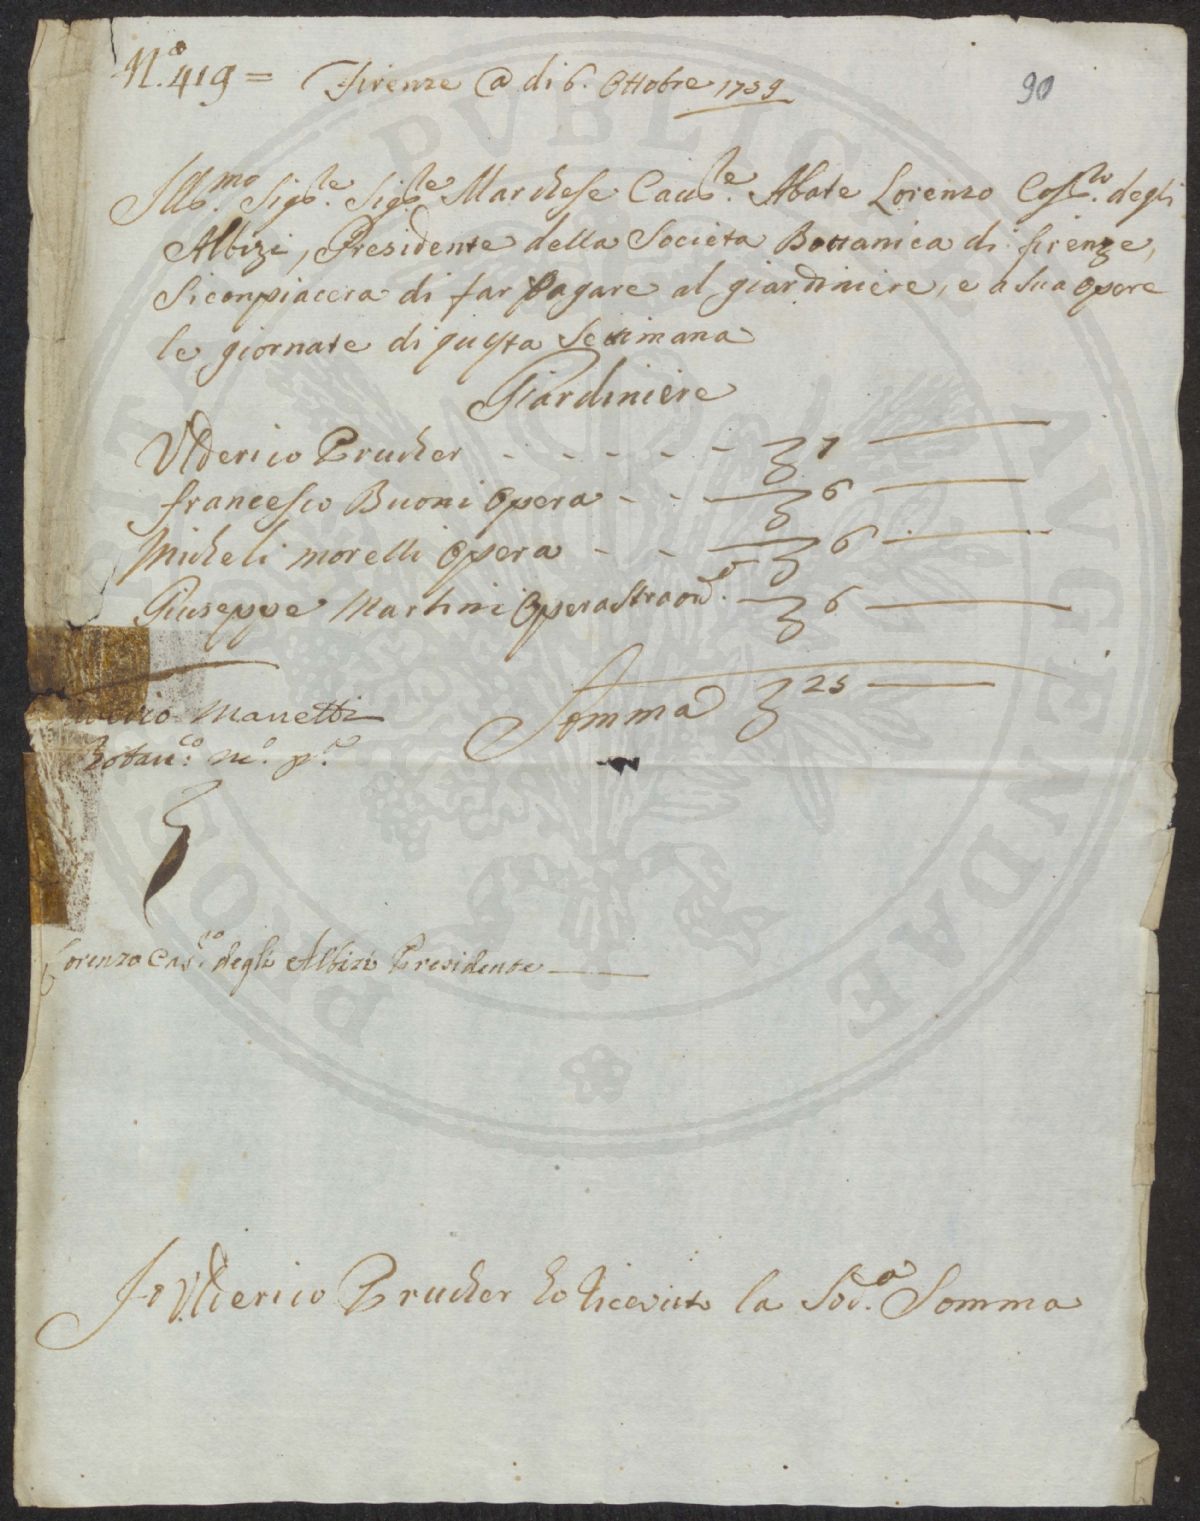 N.o 419 = Firenze @ di 6. Ottobre 1759
90
Ill.mo Sig.re Sig.re Marchese Cau.re Abate Lorenzo Cos.to degli
Albizi, Presidente della Societa Bottanica di firenze,
Si conpiacera di far pagare al giardiniere, e a sua opere
le giornate di questa Settimana
Giardiniere
Ulderico Prucher - - - - - 7 —
francesco Buoni Opera - - - 6 —
Micheli morelli Opera - - 6 —
Giuseppe Martini Opera straord.o 6 —
Somma 25 —
Manetti
Botan.co m.o p.a
Lorenzo Cos.to degli Albizi Presidente
Io Ulderico Prucher ho Ricevuto la Sod.a Somma
PVBLICAE AVGENDAE